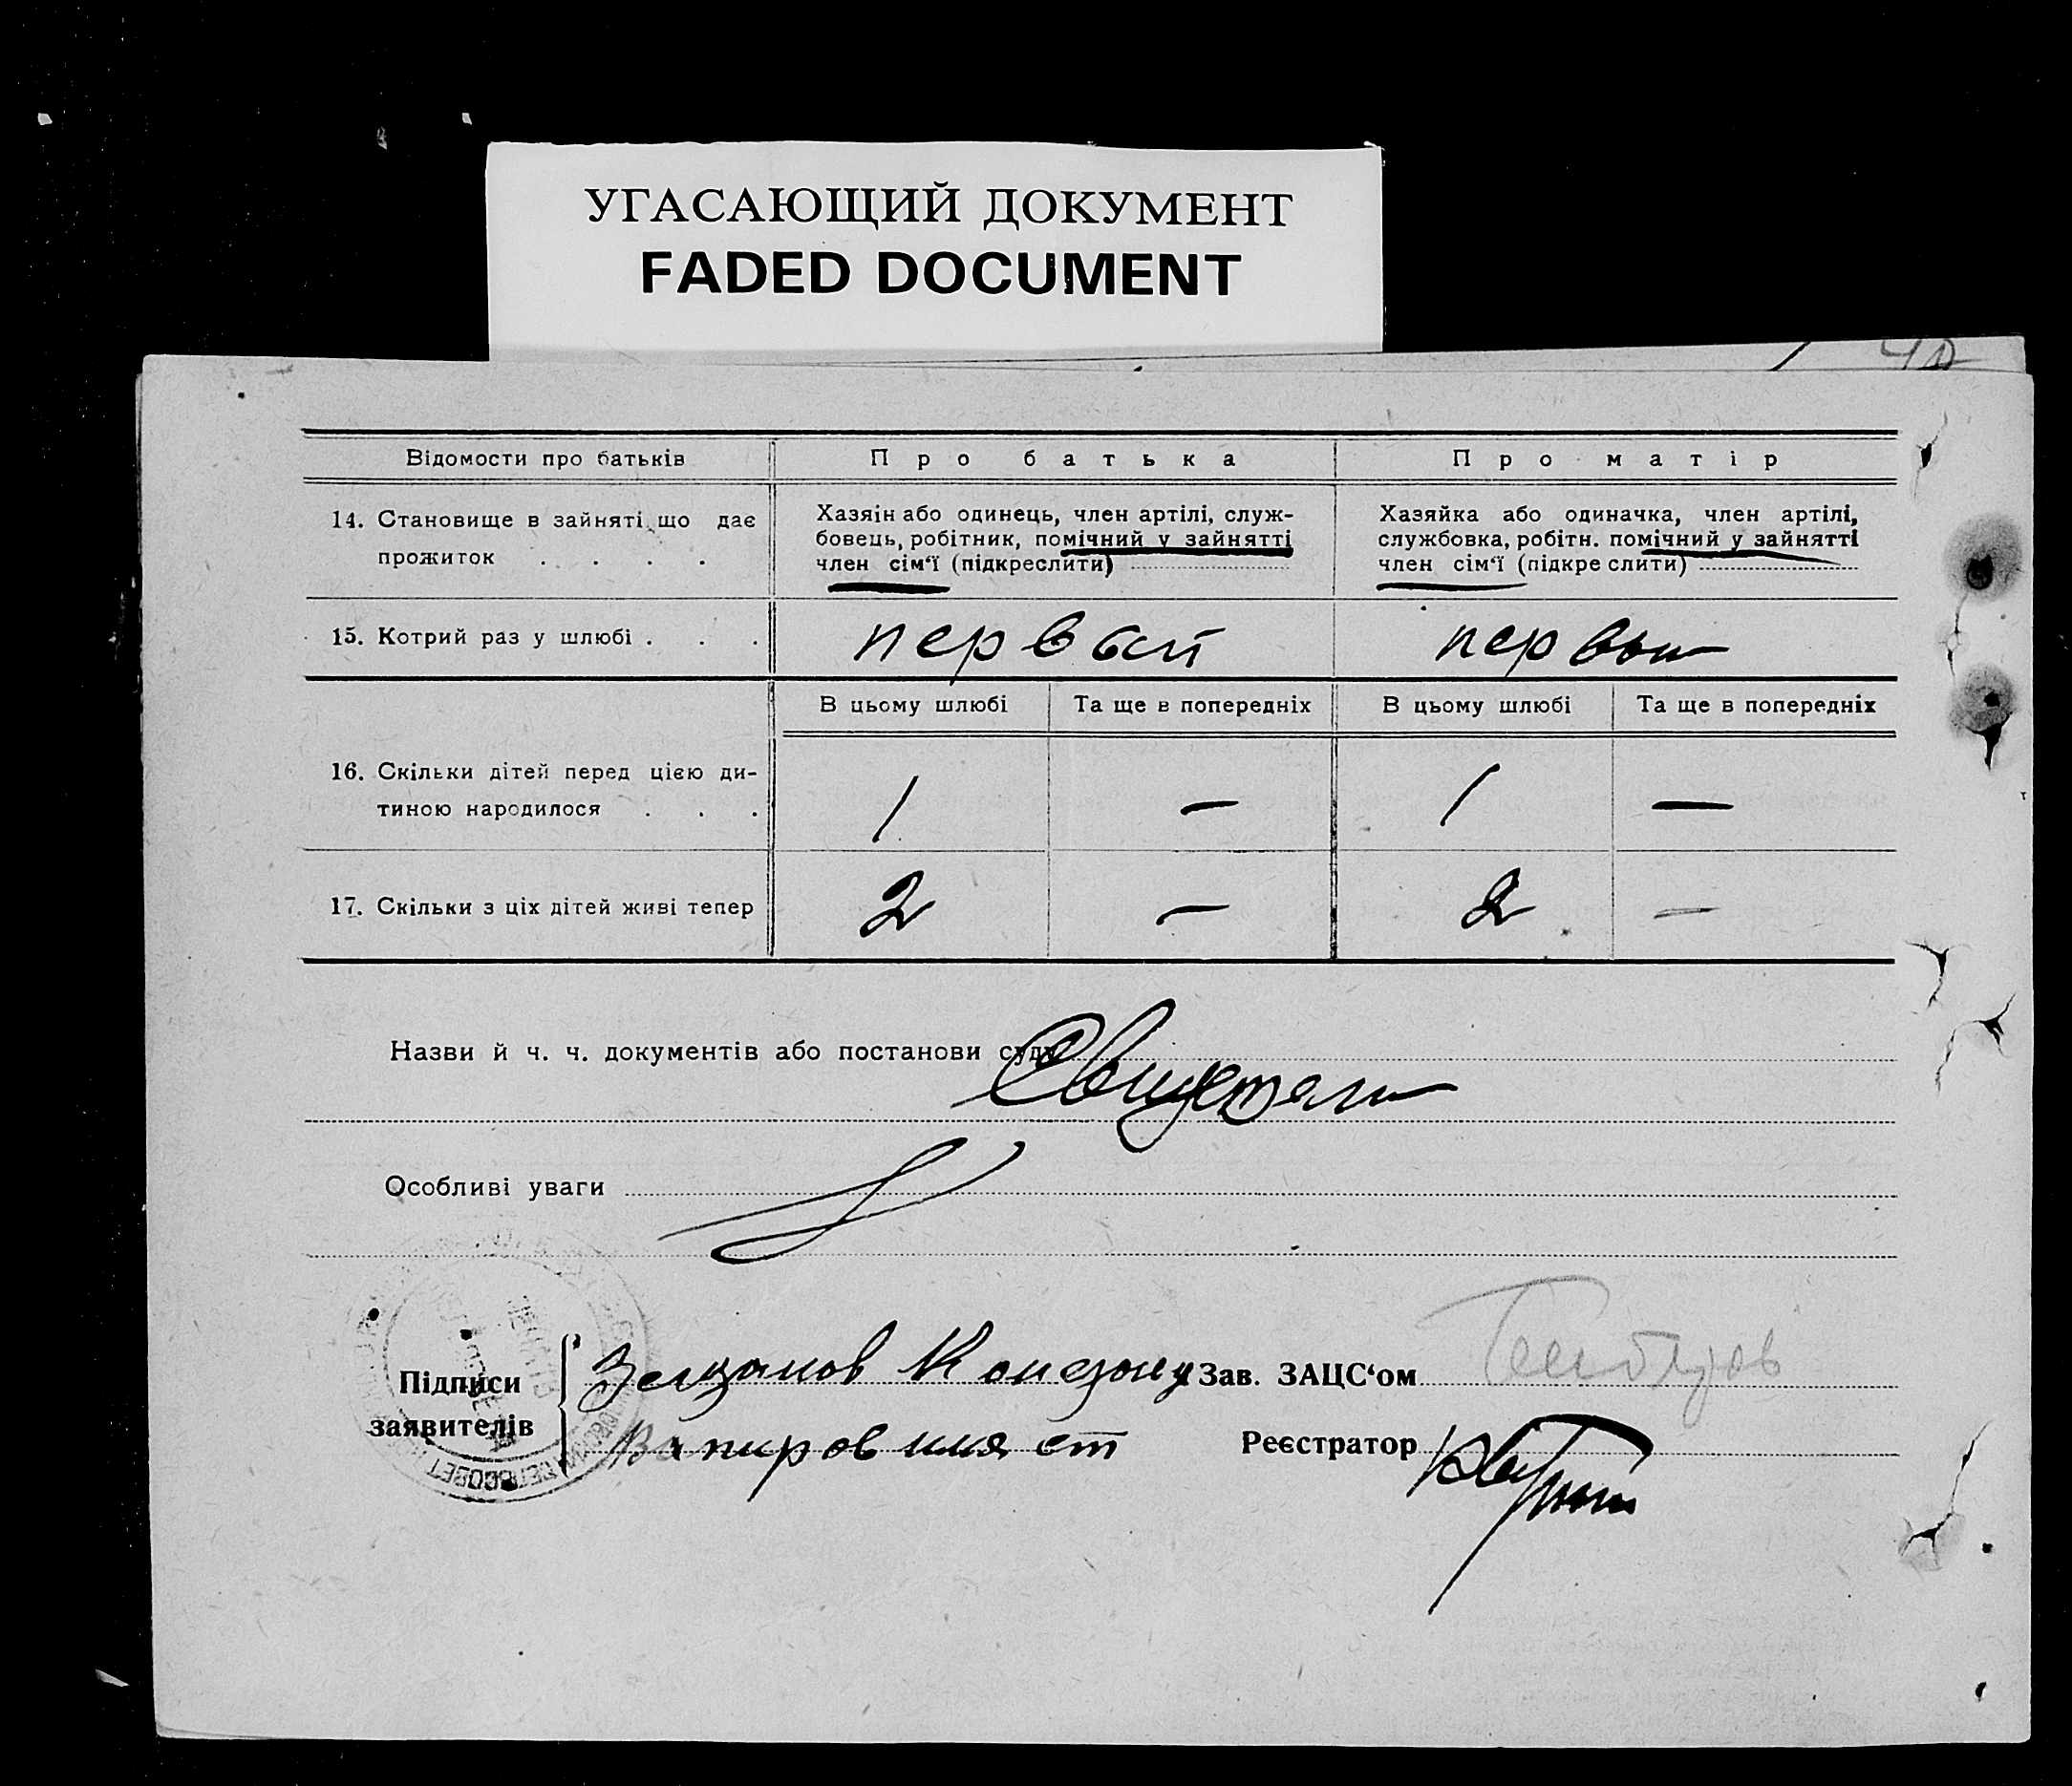 УГАСАЮЩИЙ ДОКУМЕНТ
FADED DOCUMENT
Відомости про батьків
Про батька
Про матір
14. Становище в зайняті що дає
прожиток . . . .
Хазяін або одинець, член артілі, служ-
бовець, робітник, помічний у зайнятті
член сім‘ї (підкреслити)
Хазяйка або одиначка, член артілі,
службовка, робітн. помічний у зайнятті
член сім‘ї (підкреслити)
15. Котрий раз у шлюбі . . .
первый
первый
В цьому шлюбі
Та ще в попередніх
В цьому шлюбі
Та ще в попередніх
16. Скільки дітей перед цією ди-
тиною народилося . . .
1
—
1
—
17. Скільки з ціх дітей живі тепер
2
—
2
—
Назви й ч. ч. документів або постанови суду
Особливі уваги
Підписи
заявителів
Зав. ЗАЦС‘ом
Реєстратор